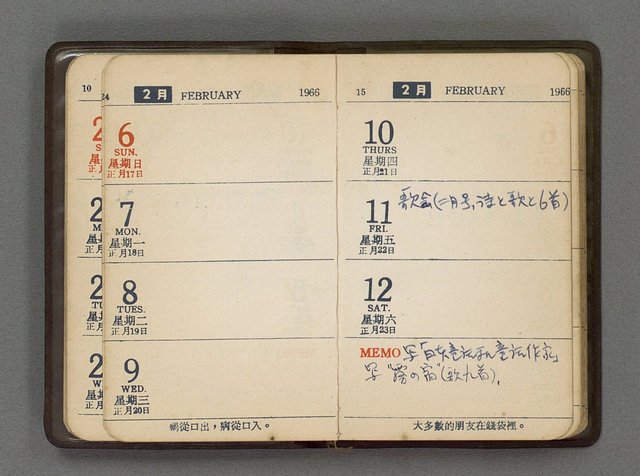 10
24
2月 FEBRUARY 1966
6
SUN.
星期日
正月17日
7
MON.
星期一
正月18日
8
TUES.
星期二
正月19日
9
WED.
星期三
正月20日
禍從口出，病從口入。
15 2月 FEBRUARY 1966
10
THURS
星期四
正月21日
11
FRI.
星期五
正月22日
歌会(二月号、詩と歌と6首)
12
SAT.
星期六
正月23日
MEMO 写「日本童話 童話作家」
写"霧の宿"(歌九首),
大多數的朋友在錢袋裡。